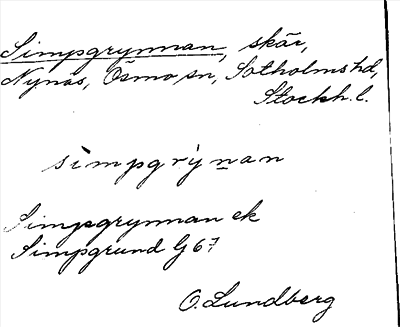 Simpgrynnan, skär,
Nynäs, Ösmo sn, Sotholms hd,
Stockh. l.
sìmpgrýn̲an
Simpgrynnan ek
Simpgrund G 67
O. Lundberg